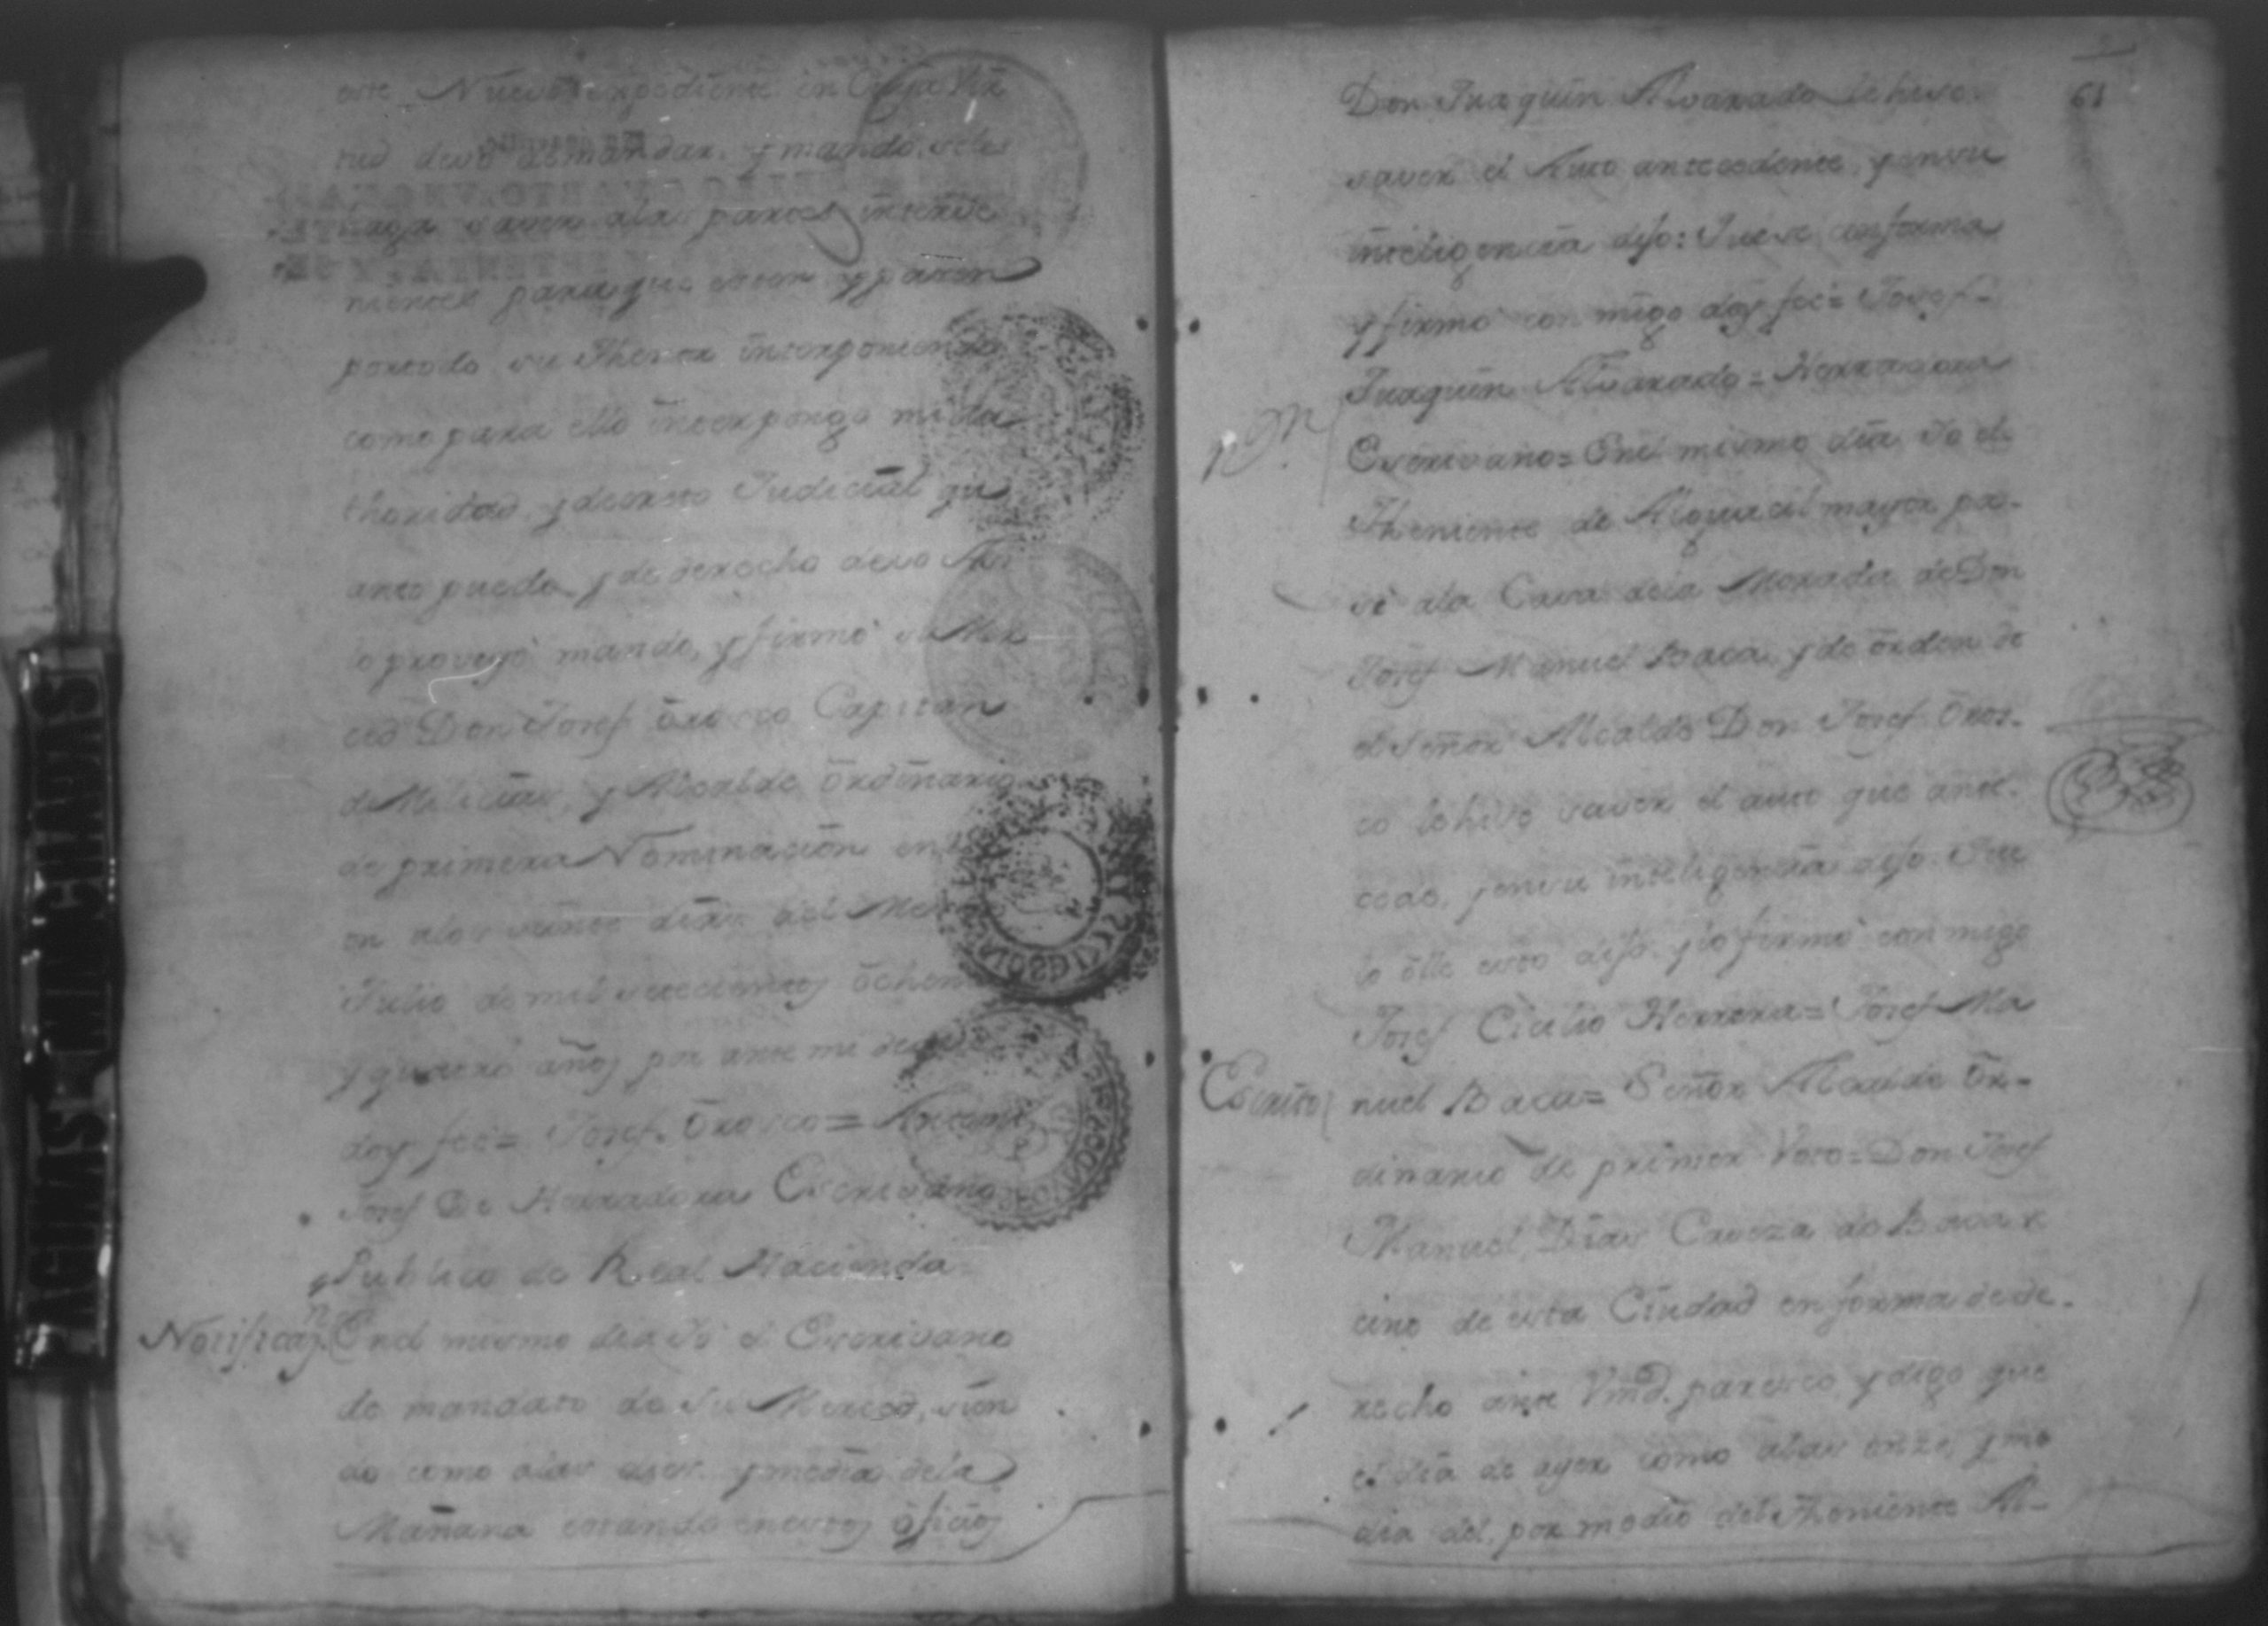 este Nuevo expediente en Cuya Vir
tud devo demandar, y mando, seles
haga saver ala partes interve
nientes para que esten y pasen
portodo su Thenor interponiendo
como para ello interpongo mi Au
thoridad, y decreto Judicial qu
anto puedo, y de derecho devo Assi
lo proveyó mandó, y firmó su Mer
ced Don Josef Orosco Capitan
de Milicias, y Alcalde Ordinario
de primera Nominacion en
en alos veinte dias del Mes
Julio de mil setecientos ochen
y quatro años por ante mi de que
doy feé= Josef Orosco= Antonio
Josef De Herradora Escrivano
Publico de Real Hacienda
Notificaⁿ. Enel mismo dia Yo el Escrivano
de mandato de Su Merced, sien
do como alas dies y media dela
Mañana estando enestos oficios
61
Don Juaquin Alvarado le hise
saver el Auto antecedente, y ensu
inteligencia dijo: Que se conforma
y firmó con migo doy feé= Josef
Juaquin Alvarado= Herradora
Escrivano= Enel mismo dia Yo el
Theniente de Alguacil mayor pa-
sé ala Casa dela Morada de Don
Josef Manuel Baca, y de orden de
el Señor Alcalde Don Josef Oros-
co le hise saver el auto que ante-
cede, y ensu inteligencia dijo Que
lo olle esto dijo, y lo firmó con migo
Josef Herrera= Josef Ma
Escrito nuel Baca= Señor Alcalde Or-
dinario de primer Voto= Don Josef
Manuel Dias Caveza de Baca ve
cino de esta Ciudad en forma de de-
recho ante Vmd. paresco y digo que
el dia de ayer como alas onze, y me
dia del, por medio del Theniente Al-